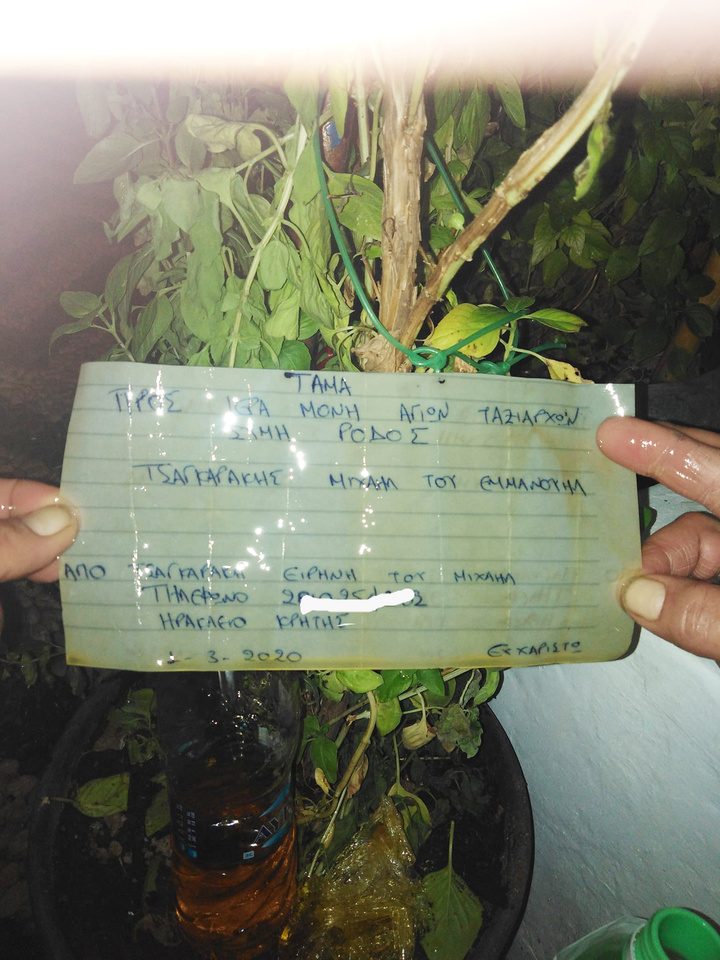 ΤΑΜΑ
ΠΡΟΣ ΙΕΡΑ ΜΟΝΗ ΑΓΙΩΝ ΤΑΞΙΑΡΧΩΝ
ΣΥΜΗ ΡΟΔΟΣ
ΤΣΑΓΚΑΡΑΚΗΣ ΜΙΧΑΗΛ ΤΟΥ ΕΜΜΑΝΟΥΗΛ
ΑΠΟ ΤΣΑΓΚΑΡΑΚΗ ΕΙΡΗΝΗ ΤΟΥ ΜΙΧΑΗΛ
ΤΗΛΕΦΩΝΟ
ΗΡΑΚΛΕΙΟ ΚΡΗΤΗΣ
3-2020
ΕΥΧΑΡΙΣΤΩ